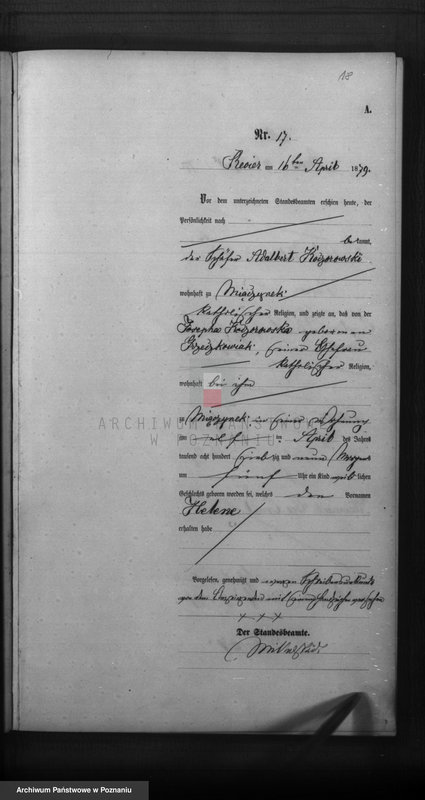 18
A.
Nr. 17.
Revier am 16ten April 1879.
Vor dem unterzeichneten Standesbeamten erschien heute, der
Persönlichkeit nach
bekannt,
der Schäfer Adalbert Kaczorowski
wohnhaft zu Miączynek
katholischer Religion, und zeigte an, daß von der
Josepha Kaczorowska geborenen
seiner Ehefrau
katholischer Religion,
wohnhaft bei ihm
ARCHIWUM PAŃSTWOWE
W POZNANIU
zu Miączynek in seiner Wohnung
am elf ten April des Jahres
tausend acht hundert siebzig und neun Morgens
um fünf Uhr ein Kind weiblichen
Geschlechts geboren worden sei, welches den Vornamen
Helene
erhalten habe
Vorgelesen, genehmigt und wegen Schreibensunkunde
von dem Anzeigenden mit seinem Handzeichen versehen
+ + +
Der Standesbeamte.
Archiwum Państwowe w Poznaniu